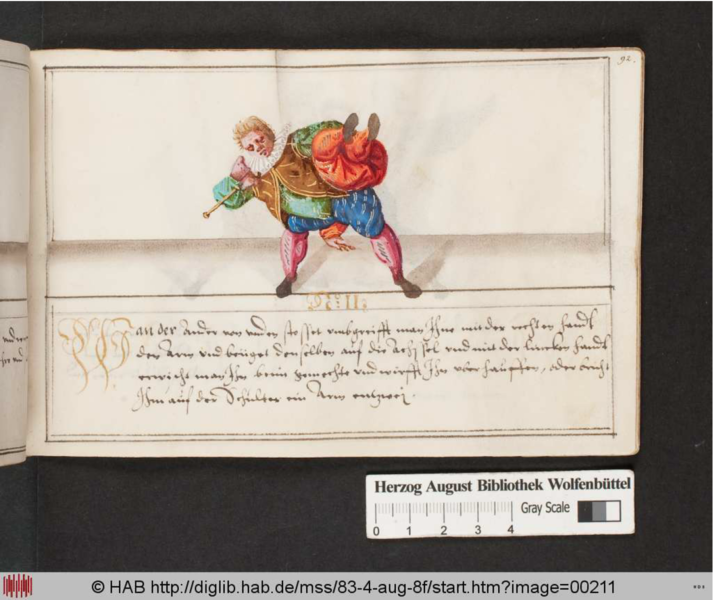 92.
No: 11:
Wan der Ander von unden stosset umbgreifft man Ihme mit der rechten handt
den Arm und beuget denselben auf die Achssel und mit der lincken handt
erwischt man Ihn beim gemechte und wirfft Ihn uber hauffen, oder bricht
Ihm auf der Schulter ein Arm entzwei.
Herzog August Bibliothek Wolfenbüttel
Gray Scale
0 1 2 3 4
© HAB http://diglib.hab.de/mss/83-4-aug-8f/start.htm?image=00211